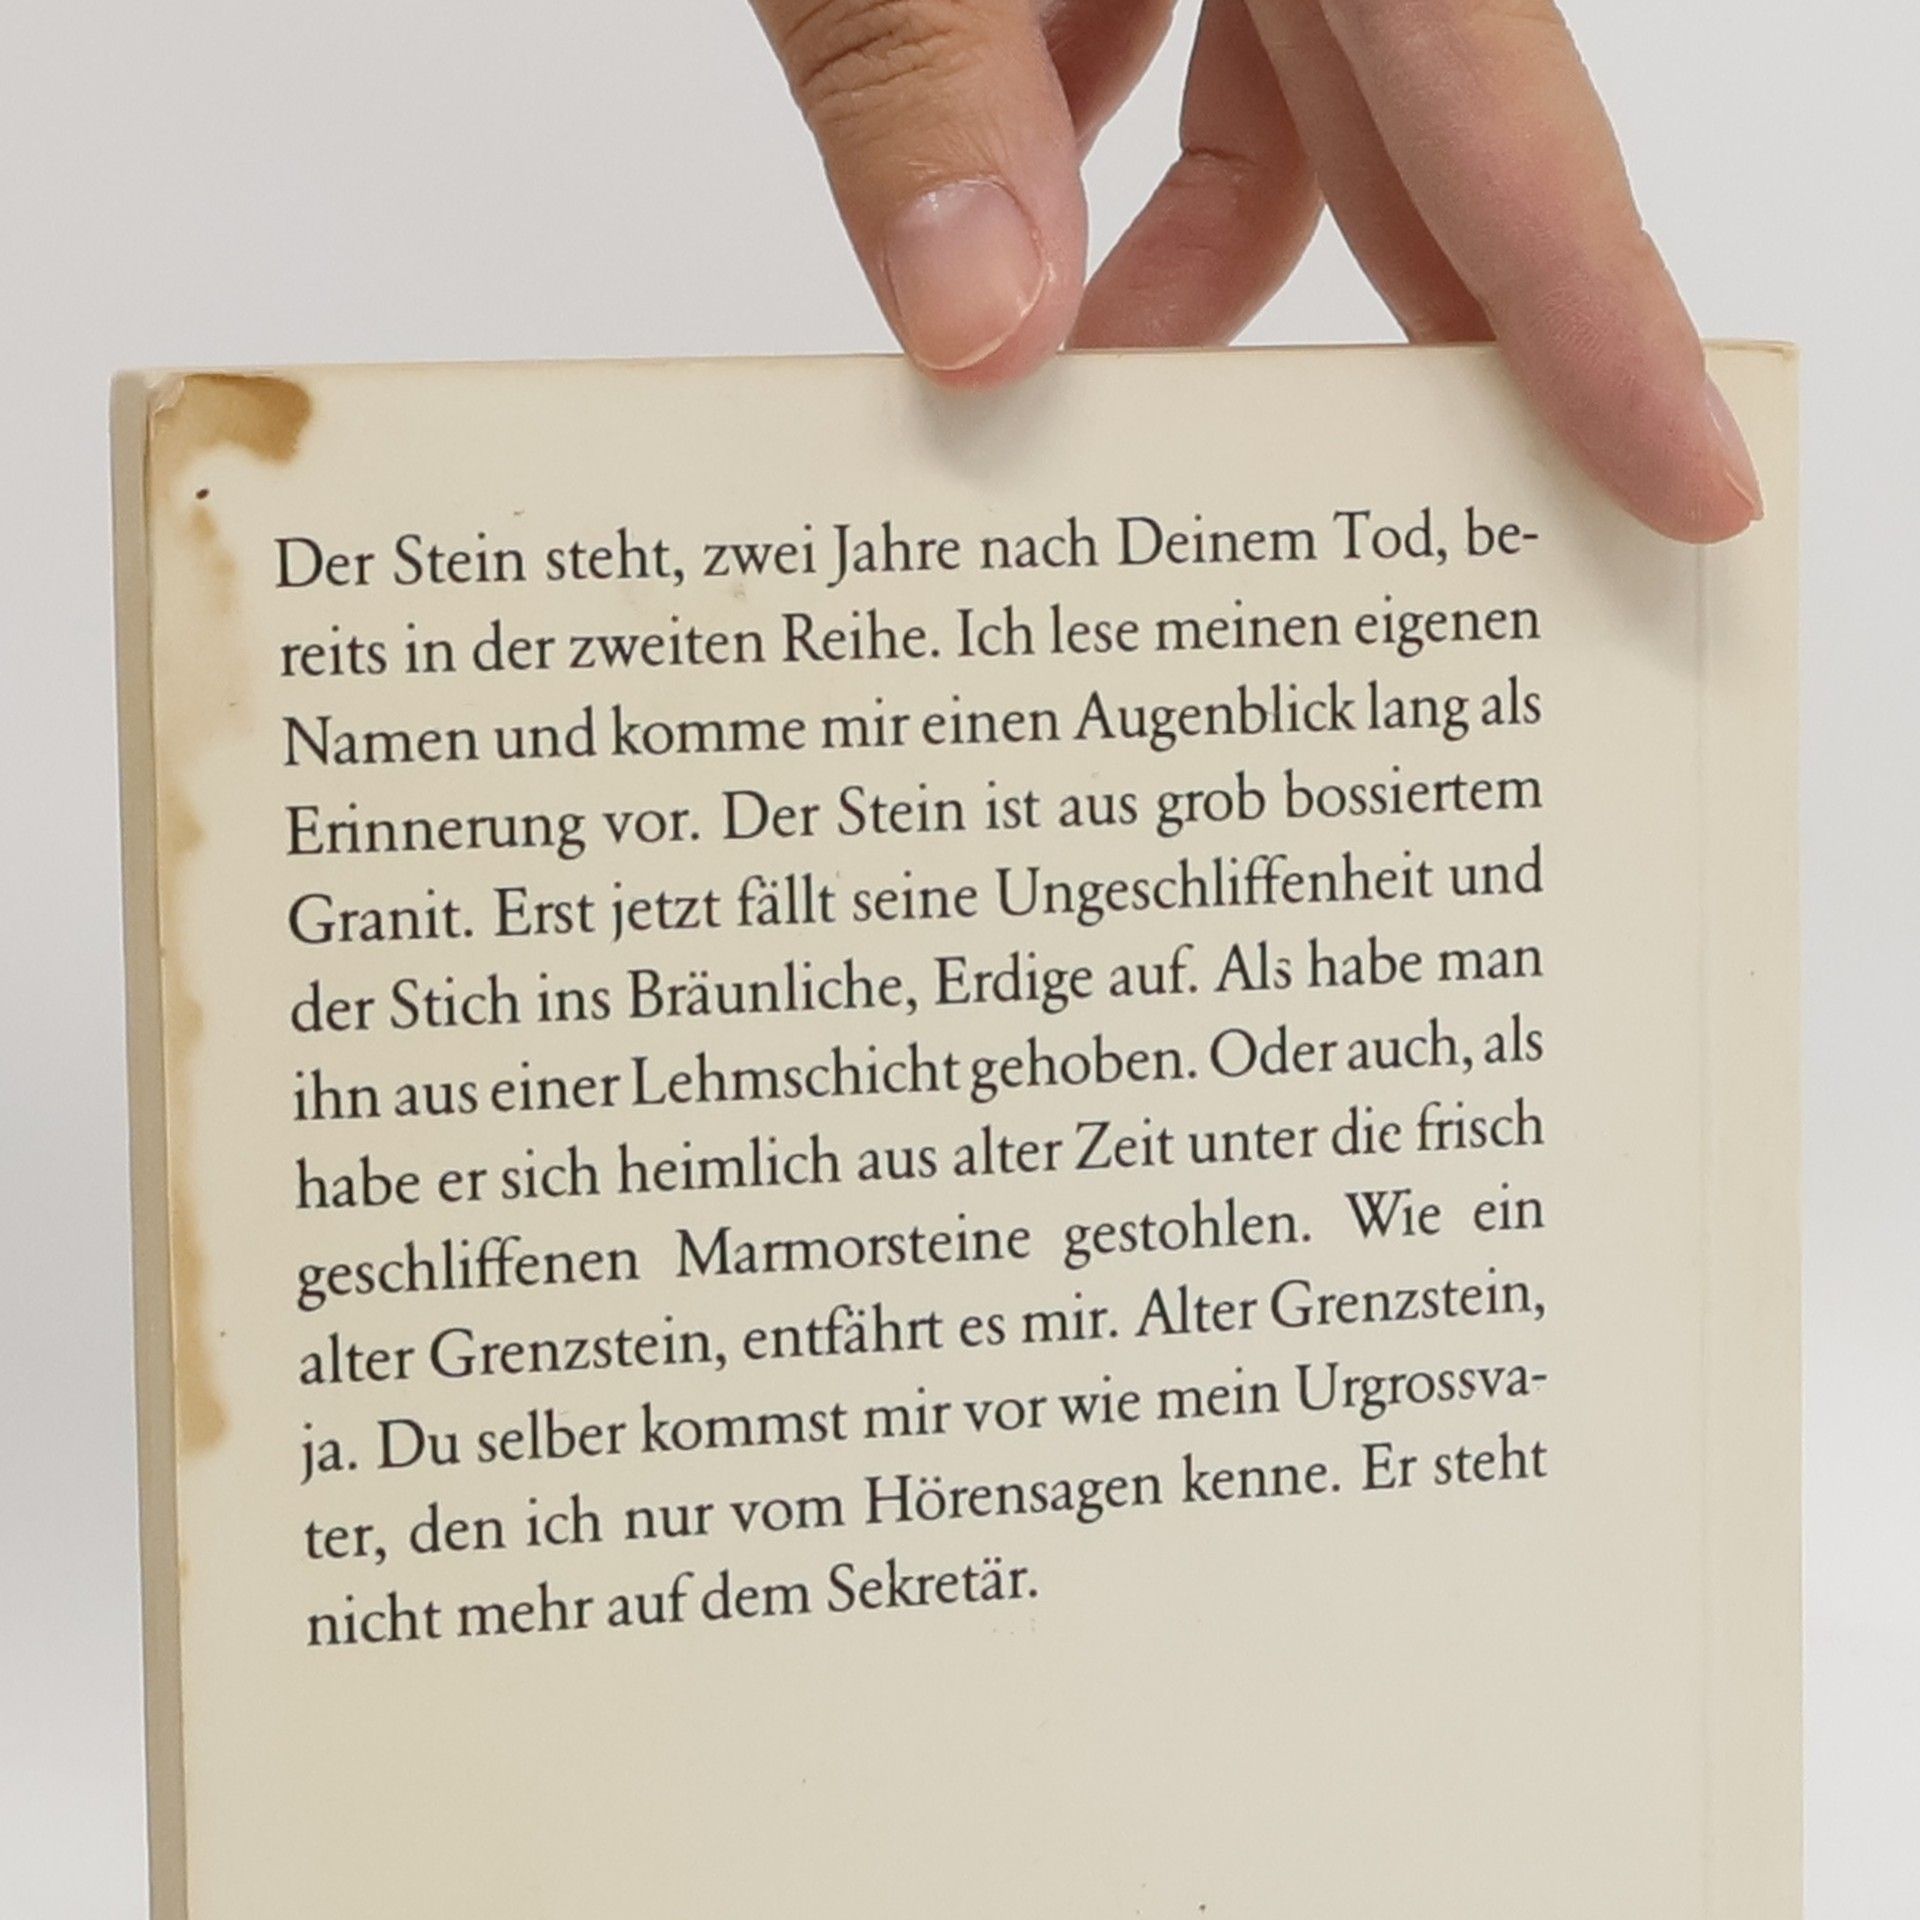 Der Stein steht, zwei Jahre nach Deinem Tod, be-
reits in der zweiten Reihe. Ich lese meinen eigenen
Namen und komme mir einen Augenblick lang als
Erinnerung vor. Der Stein ist aus grob bossiertem
Granit. Erst jetzt fällt seine Ungeschliffenheit und
der Stich ins Bräunliche, Erdige auf. Als habe man
ihn aus einer Lehmschicht gehoben. Oder auch, als
habe er sich heimlich aus alter Zeit unter die frisch
geschliffenen Marmorsteine gestohlen. Wie ein
alter Grenzstein, entfährt es mir. Alter Grenzstein,
ja. Du selber kommst mir vor wie mein Urgrossva-
ter, den ich nur vom Hörensagen kenne. Er steht
nicht mehr auf dem Sekretär.